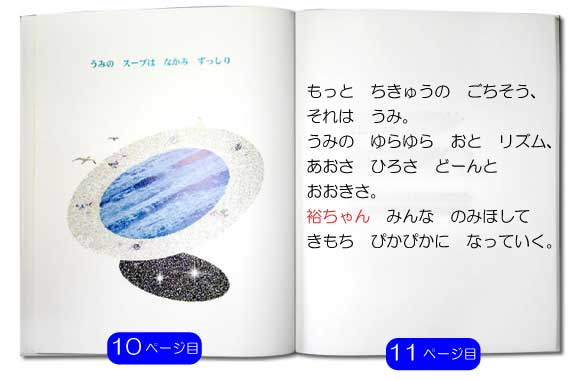 うみの　スープは　なかみ　ずっしり
もっと　ちきゅうの　ごちそう、
それは　うみ。
うみの　ゆらゆら　おと　リズム、
あおさ　ひろさ　どーんと
おおきさ。
裕ちゃん　みんな　のみほして
きもち　ぴかぴかに　なっていく。
10ページ目
11ページ目